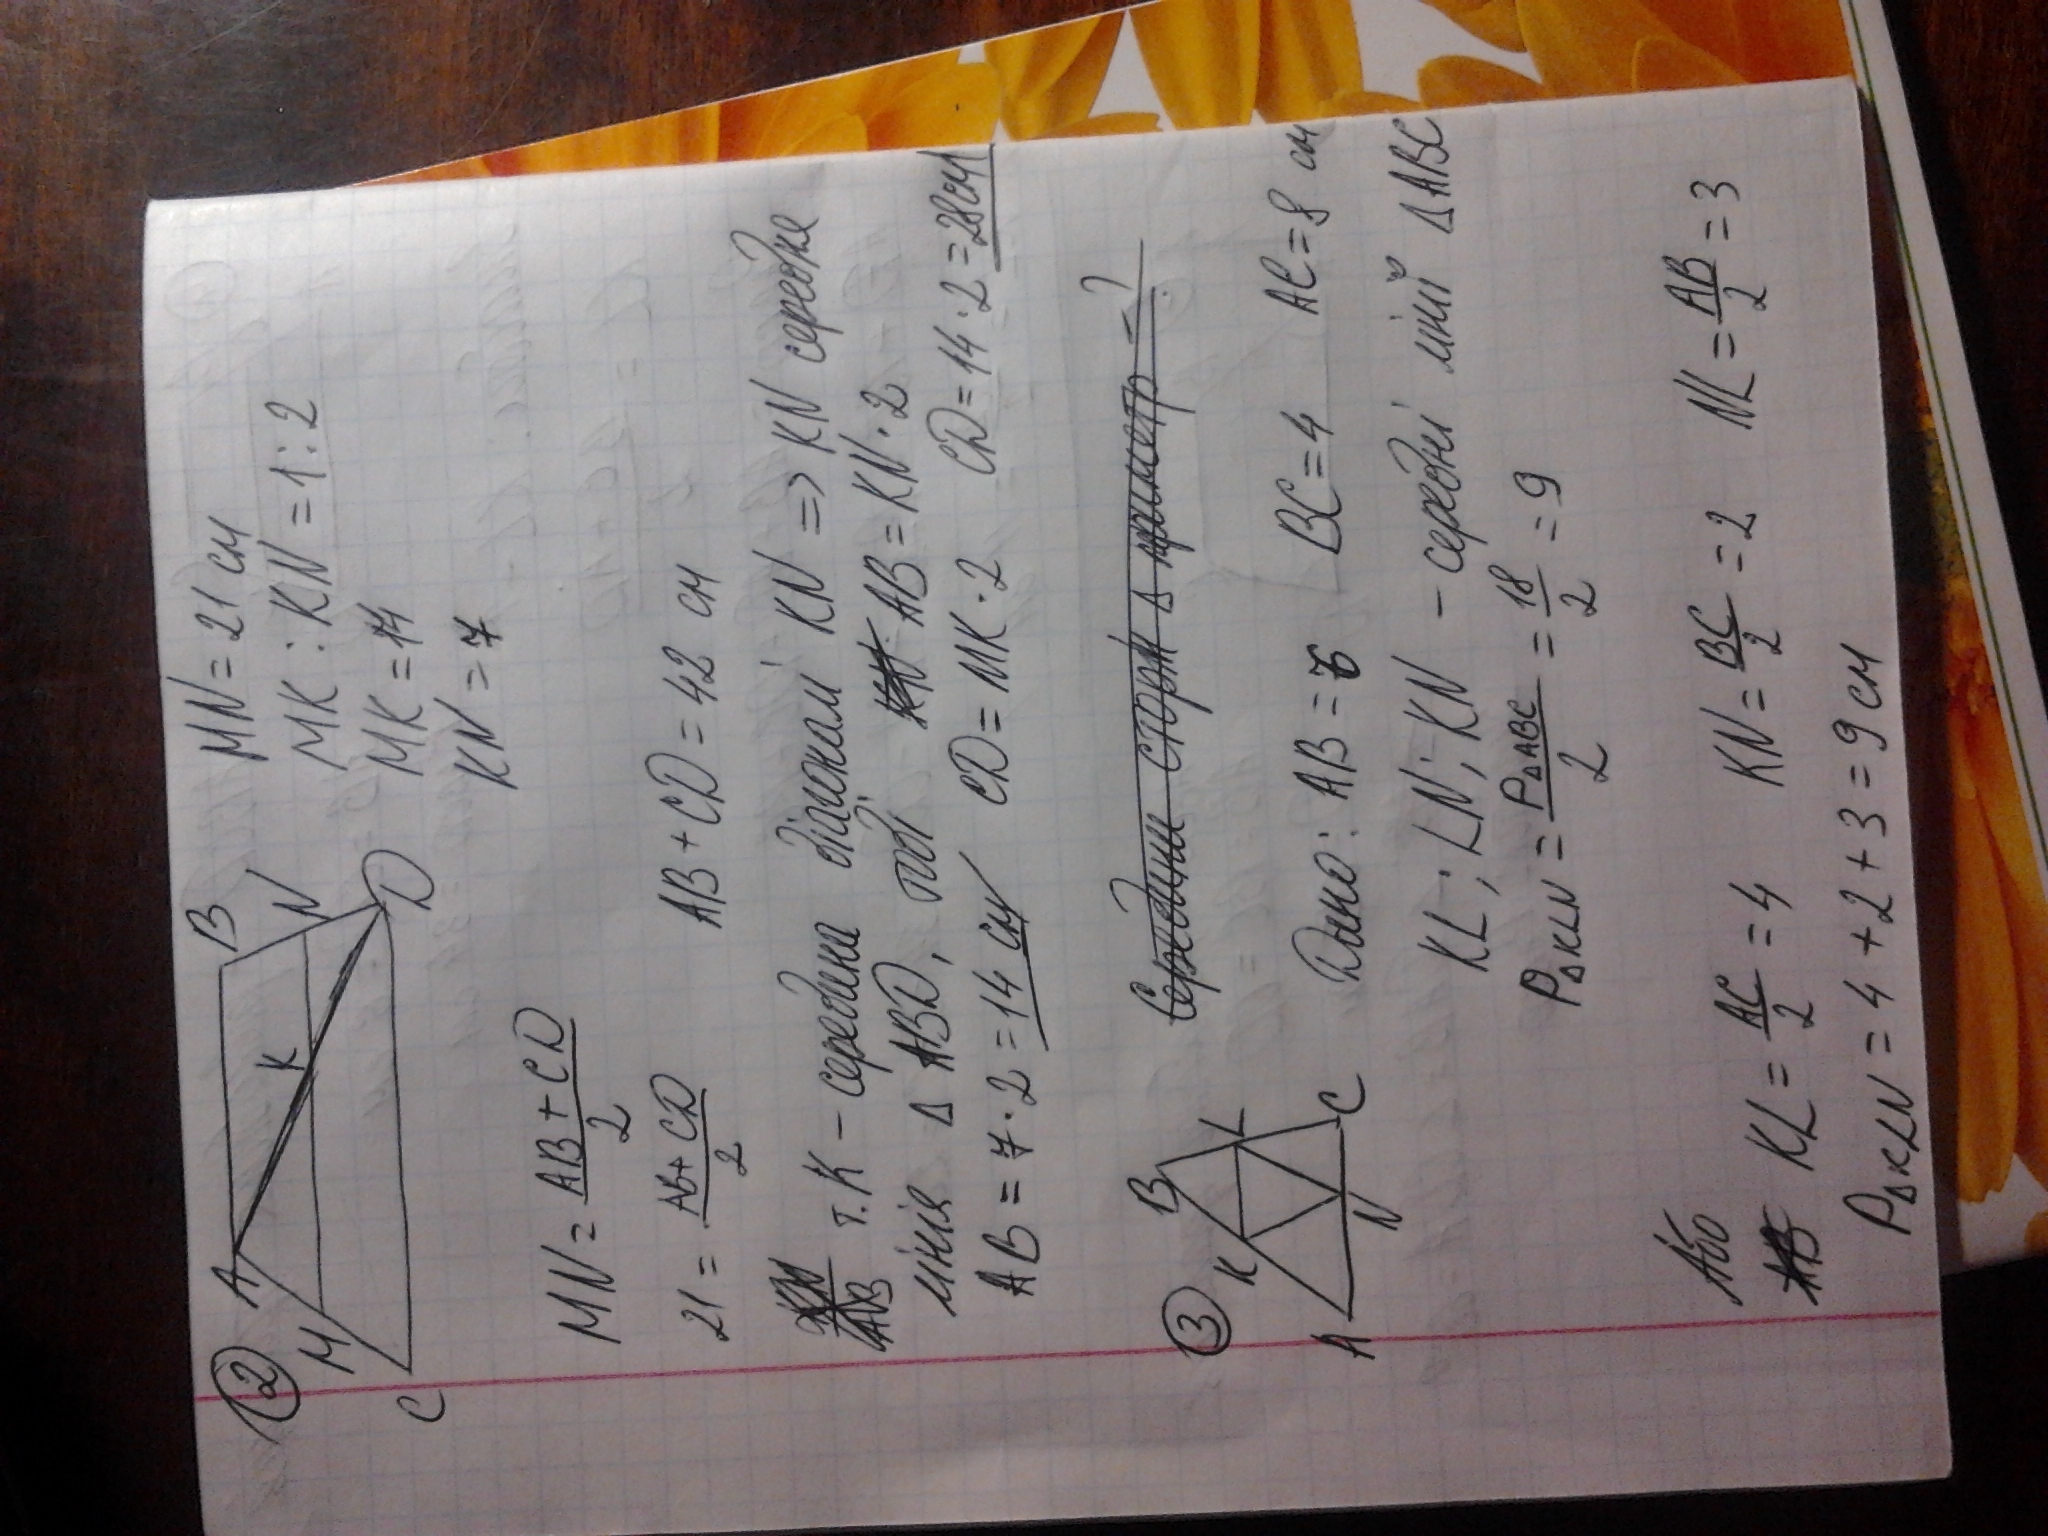 2
A B
M K N
C D
MN = 21 см
MK : KN = 1 : 2
MK = 14
KN = 7
MN = AB + CD / 2
21 = AB + CD / 2 AB + CD = 42 см
т. K – середина діагоналі KN => KN середня
лінія Δ ABD, тоді AB = KN · 2
AB = 7 · 2 = 14 см CD = MK · 2 CD = 14 · 2 = 28 см
Середини сторін Δ периметр – ?
3
B
K L
A N C
Дано: AB = 6 BC = 4 AC = 8 см
KL; LN; KN – середні лінії Δ ABC
PΔKLN = PΔABC / 2 = 18 / 2 = 9
Або
KL = AC / 2 = 4 KN = BC / 2 = 2 NL = AB / 2 = 3
PΔKLN = 4 + 2 + 3 = 9 см